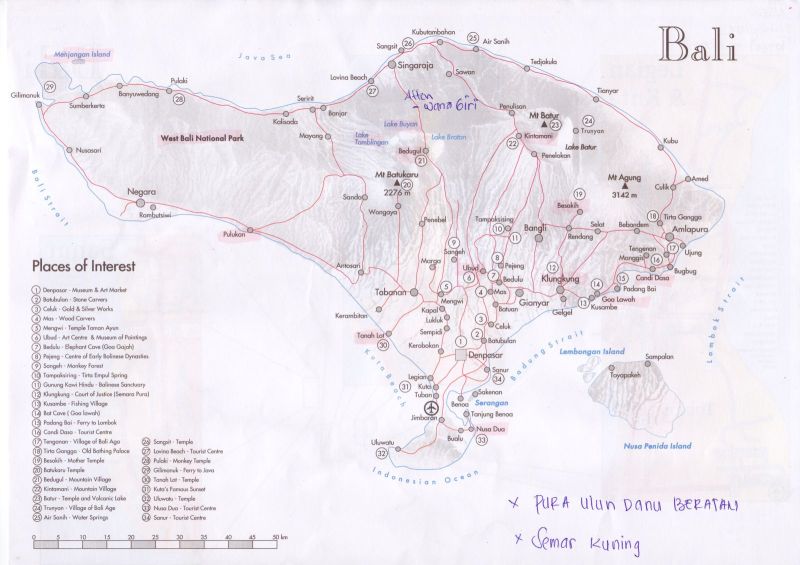 Bali
Java Sea
Menjangan Island
Gilimanuk
29
Sumberkerta
Banyuwedang
Pulaki
28
Kalisada
Seririt
Banjar
Lovina Beach
27
Sangsit
26
Kubutambahan
25
Air Sanih
Singaraja
Sawan
Tedjakula
Tianyar
Wana Giri
Penulisan
Mt Batur
23
24
Trunyan
Kintamani
22
Lake Batur
Penelokan
Kubu
West Bali National Park
Mayong
Lake Buyan
Lake Tamblingan
Lake Bratan
Bedugul
21
Nusasari
Bali Strait
Mt Batukaru
20
2276 m
Mt Agung
3142 m
Culik
Amed
Negara
Rambutsiwi
Sanda
Wangaya
Penebel
Tampaksiring
10
11
Bangli
Besakih
19
Rendang
Selat
Bebandem
18
Tirta Gangga
Amlapura
Pulukan
Antosari
Marga
9
Sangeh
8
Pejeng
7
Bedulu
Ubud
6
12
Klungkung
Tengenan
Manggis
17
16
15
Ujung
Bugbug
Candi Dasa
Padang Bai
14
Goa Lawah
13
Kusambe
Gelgel
Tabanan
5
Mengwi
4
Mas
Gianyar
Batuan
Kerambitan
Kapal
Lukluk
Sempidi
3
Celuk
2
Batubulan
Tanah Lot
30
Kerobokan
1
Denpasar
Sanur
34
Kuta Beach
Badung Strait
Lombok Strait
Legian
31
Kuta
Tuban
Sakenan
Serangan
Benoa
Tanjung Benoa
Jimbaran
Nusa Dua
33
Bualu
Uluwatu
32
Indonesian Ocean
Lembongan Island
Toyapakeh
Sampalan
Nusa Penida Island
Places of Interest
1 Denpasar - Museum & Art Market
2 Batubulan - Stone Carvers
3 Celuk - Gold & Silver Works
4 Mas - Wood Carvers
5 Mengwi - Temple Taman Ayun
6 Ubud - Art Centre & Museum of Paintings
7 Bedulu - Elephant Cave (Goa Gajah)
8 Pejeng - Centre of Early Balinese Dynasties
9 Sangeh - Monkey Forest
10 Tampaksiring - Tirta Empul Spring
11 Gunung Kawi Hindu - Balinese Sanctuary
12 Klungkung - Court of Justice (Semara Pura)
13 Kusambe - Fishing Village
14 Bat Cave ( Goa lawah)
15 Padang Bai - Ferry to Lombok
16 Candi Dasa - Tourist Centre
17 Tenganan - Village of Bali Aga
18 Tirta Gangga - Old Bathing Palace
19 Besakih - Mother Temple
20 Batukaru Temple
21 Bedugul - Mountain Village
22 Kintamani - Mountain Village
23 Batur - Temple and Volcanic Lake
24 Trunyan - Village of Bali Age
25 Air Sanih - Water Springs
26 Sangsit - Temple
27 Lovina Beach - Tourist Centre
28 Pulaki - Monkey Temple
29 Gilimanuk - Ferry to Java
30 Tanah Lot - Temple
31 Kuta's Famous Sunset
32 Uluwatu - Temple
33 Nusa Dua - Tourist Centre
34 Sanur - Tourist Centre
0 5 10 15 20 25 30 35 40 45 50 km
x PURA Ulun Danu BERATAN
x Semar Kuning